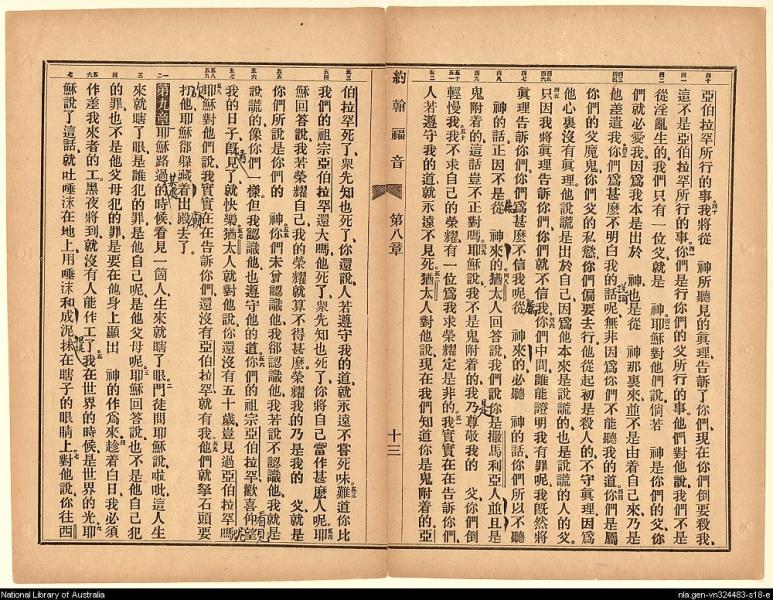 亞伯拉罕所行的事我將從 神所聽見的眞理告訴了你們現在你們倒要殺我
這不是亞伯拉罕所行的事你們是行你們的父所行的事他們對他說我們不是
從淫亂生的我們只有一位父就是 神耶穌對他們說倘若 神是你們的父你
們就必愛我因爲我本是出於 神也是從 神那裏來並不是由着自己來乃是
他差遣我你們爲甚麼不明白我的話呢無非因爲你們不能聽我的道你們是屬
你們的父魔鬼你們父的私慾你們偏要去行他從起初是殺人的不守眞理因爲
他心裏沒有眞理他說謊是出於自己因爲他本來是說謊的也是說謊的人的父
只因我將眞理告訴你們你們就不信我你們中間誰能證明我有罪呢我旣然將
眞理告訴你們你們爲甚麼不信我呢從 神來的必聽 神的話你們所以不聽
神的話正因不是從 神來的猶太人回答說我們說你是撒馬利亞人並且是
鬼附着的這話豈不正對嗎耶穌說我不是鬼附着的我乃尊敬我的 父你們倒
輕慢我我不求自己的榮耀有一位爲我求榮耀定是非的我實實在在告訴你們
人若遵守我的道就永遠不見死猶太人對他說現在我們知道你是鬼附着的亞
約翰福音 第八章 十三
伯拉罕死了衆先知也死了你還說人若遵守我的道就永遠不嘗死味難道你比
我們的祖宗亞伯拉罕還大嗎他死了衆先知也死了你將自己當作甚麼人呢耶
穌回答說我若榮耀自己我的榮耀就算不得甚麼榮耀我的乃是我的 父就是
你們所說是你們的 神你們未曾認識他我卻認識他我若說不認識他我就是
說謊的像你們一樣但我認識他也遵守他的道你們的祖宗亞伯拉罕歡喜仰望
我的日子旣見了就快樂猶太人就對他說你還沒有五十歲豈見過亞伯拉罕嗎
耶穌對他們說我實實在在告訴你們還沒有亞伯拉罕就有我他們就拏石頭要
打他耶穌卻躱藏着出殿去了
第九章耶穌路過的時候看見一個人生來就瞎了眼門徒問耶穌說啦吡這人生
來就瞎了眼是誰犯的罪是他自己呢是他父母呢耶穌回答說也不是他自己犯
的罪也不是他父母犯的罪是要在他身上顯出 神的作爲來趁着白日我必須
作差我來者的工黑夜將到就沒有人能作工了我在世界的時候是世界的光耶
穌說了這話就吐唾沫在地上用唾沫和成泥抹在瞎子的眼睛上對他說你往西
National Library of Australia
nla.gen-vn324483-s18-e